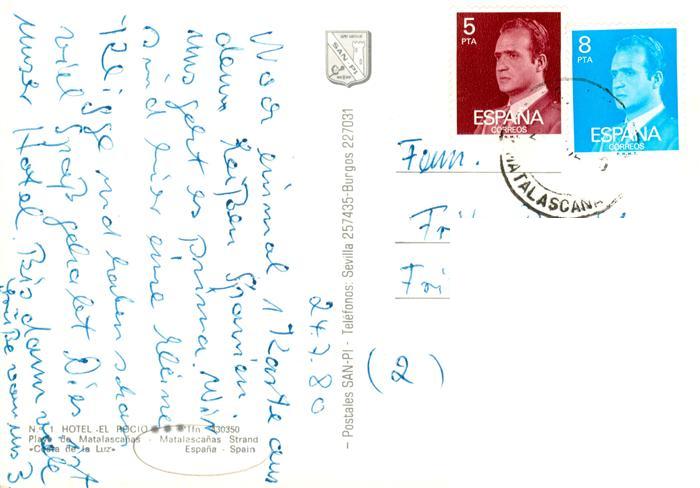 24.7.80
Noch einmal 1 Karte aus
dem heißen Spanien.
Uns geht es prima. Wir
sind hier eine kleine
und haben schon
viel Spaß gehabt. Dies ist
unser Hotel. Bis dann viele
Grüße von uns 3
SAN-PI
– Postales SAN-PI - Teléfonos: Sevilla 257435-Burgos 227031
5
PTA
ESPAÑA
CORREOS
8
PTA
ESPAÑA
CORREOS
MATALASCAÑAS
Fam.
(2)
N.º 1 HOTEL -EL ROCIO Tfn 430350
Playa de Matalascañas - Matalascañas Strand
«Costa de la Luz» España - Spain